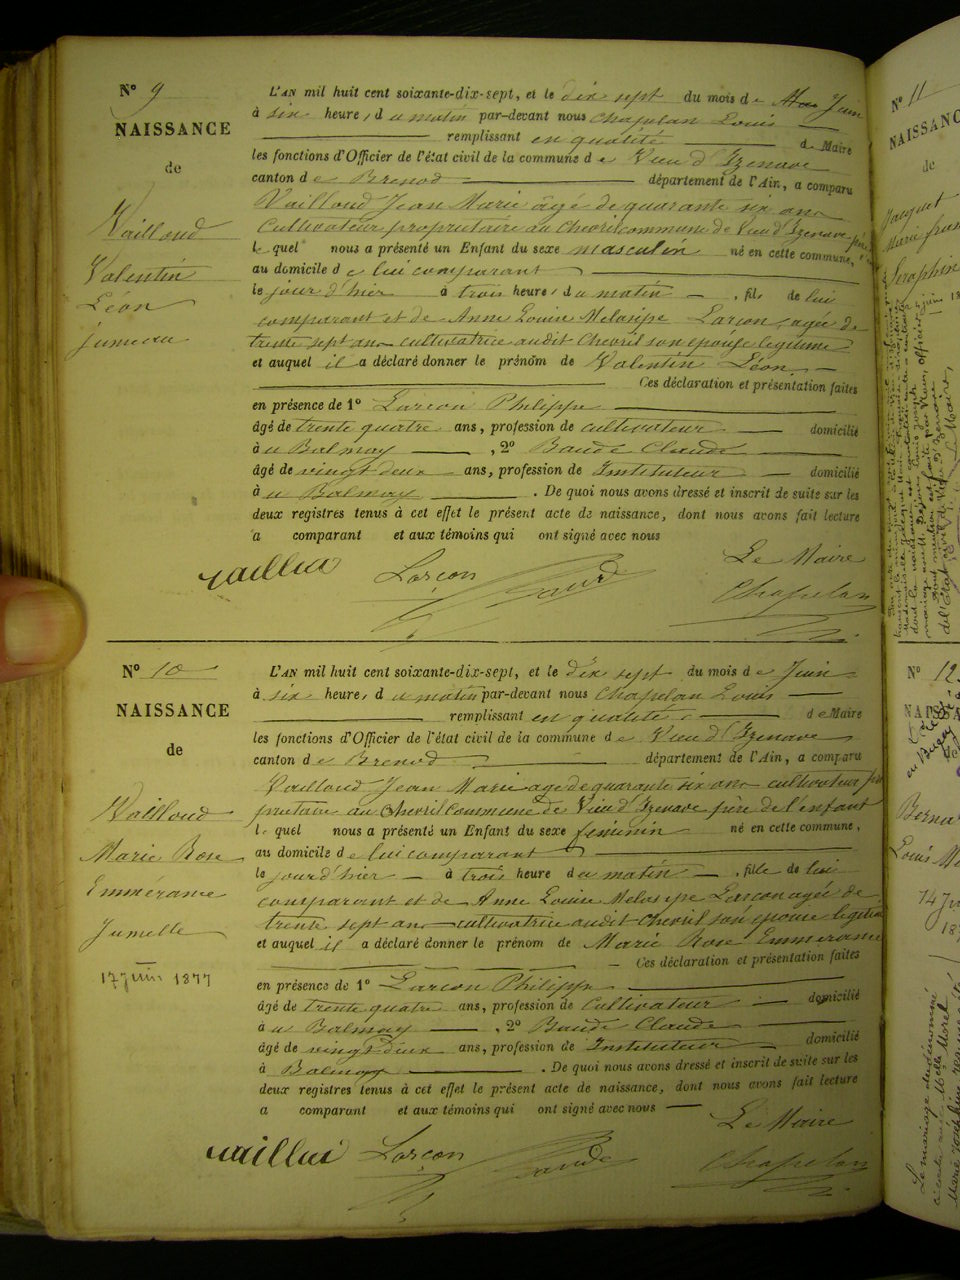 N° 9
NAISSANCE
de
Vailloud
Valentin
Léon
jumeau
L'AN mil huit cent soixante-dix-sept, et le dix sept du mois de Juin
à six heures du matin par-devant nous Chapelan Louis
remplissant en qualité de Maire
les fonctions d'Officier de l'état civil de la commune de Vieu d'Izenave
canton de Brenod département de l'Ain, a comparu
Vailloud Jean Marie âgé de quarante six ans
Cultivateur propriétaire au Chevril commune de Vieu d'Izenave
lequel nous a présenté un Enfant du sexe masculin né en cette commune,
au domicile de lui comparant
le jour d'hier à trois heures du matin, fils de lui
comparant et de Anne Louise Larçon, agée de
trente sept ans cultivatrice audit Chevril son épouse légitime
et auquel il a déclaré donner le prénom de Valentin Léon
Ces déclaration et présentation faites
en présence de 1° Larçon Philippe
âgé de trente quatre ans, profession de cultivateur domicilié
à u Balmay, 2° Baude Claude
âgé de vingt deux ans, profession de Instituteur domicilié
à u Balmay. De quoi nous avons dressé et inscrit de suite sur les
deux registres tenus à cet effet le présent acte de naissance, dont nous avons fait lecture
a comparant et aux témoins qui ont signé avec nous
Le Maire
Larçon Baude Chapelan
N° 10
NAISSANCE
de
Vailloud
Marie Rose
Emmérance
Jumelle
17 juin 1877
L'AN mil huit cent soixante-dix-sept, et le dix sept du mois de Juin
à six heures du matin par-devant nous Chapelan Louis
remplissant en qualité de Maire
les fonctions d'Officier de l'état civil de la commune de Vieu d'Izenave
canton de Brenod département de l'Ain, a comparu
Vailloud Jean Marie age de quarante six ans cultivateur pro
prietaire au Chevril Commune de Vieu d'Izenave père de l'enfant
lequel nous a présenté un Enfant du sexe feminin né en cette commune,
au domicile de lui comparant
le jour d'hier à trois heure du matin, fille de lui
comparant et de Anne Louise Larçon agée de
trente sept ans cultivatrice audit Chevril son épouse légitime
et auquel il a déclaré donner le prénom de Marie Rose Emmerance
Ces déclaration et présentation faites
en présence de 1° Larçon Philippe
âgé de trente quatre ans, profession de Cultivateur domicilié
à u Balmay, 2° Baude Claude
âgé de vingt deux ans, profession de Instituteur domicilié
à Balmay. De quoi nous avons dressé et inscrit de suite sur les
deux registres tenus à cet effet le présent acte de naissance, dont nous avons fait lecture
a comparant et aux témoins qui ont signé avec nous
Le Maire
Larçon Baude Chapelan
N° 11
NAISSANC
de
Jacquet
Seraphin
N° 12
Louis